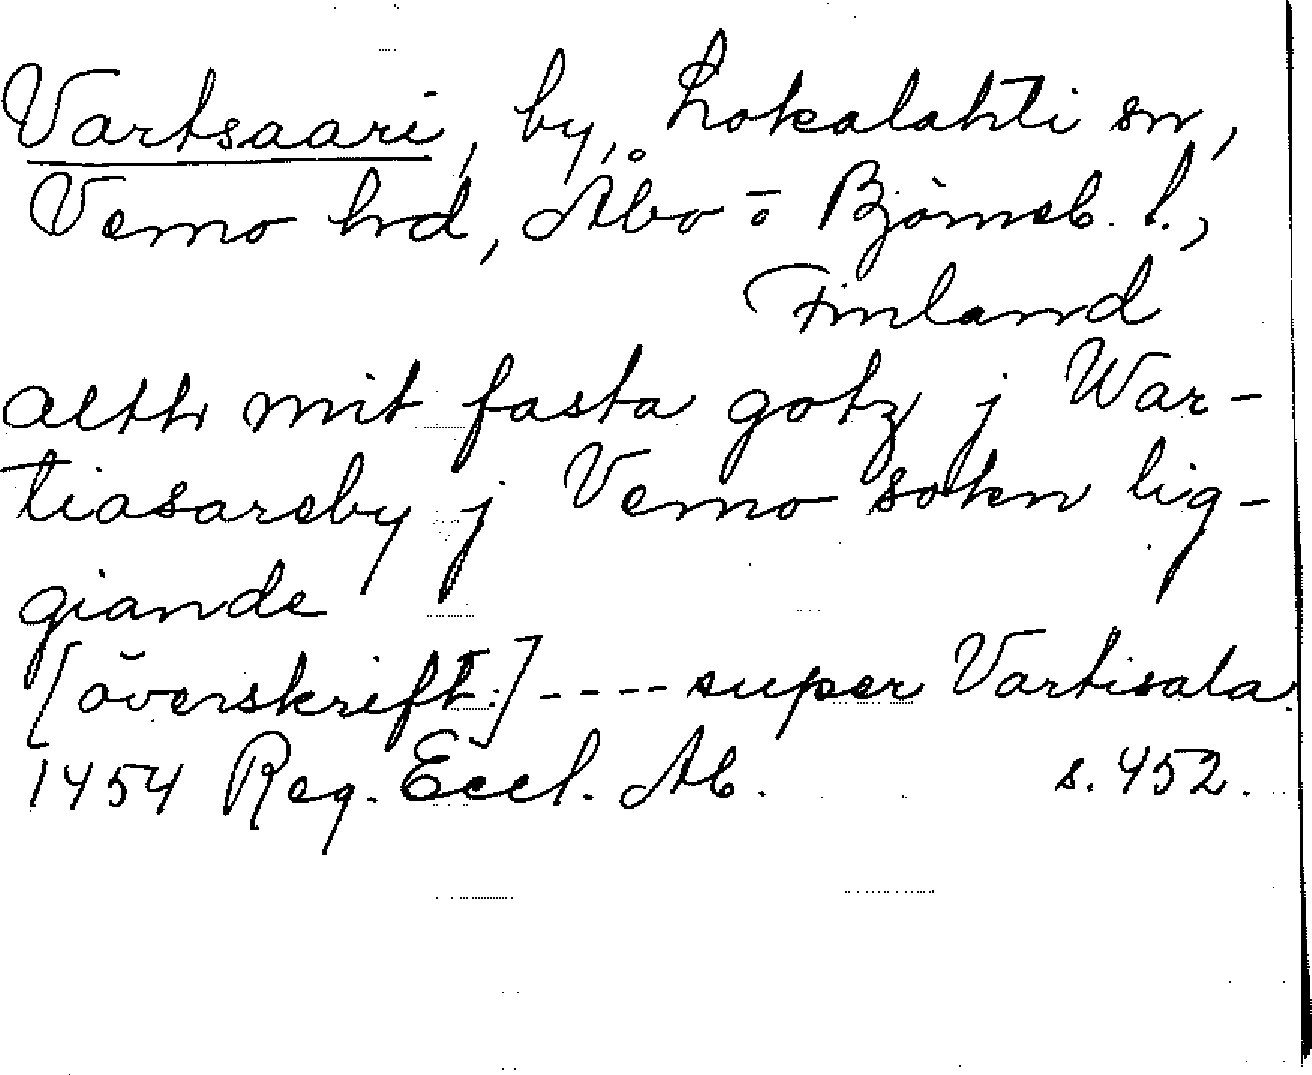 Vartsaari, by, Lokalahti sn,
Vemo hrd, Åbo- o Björneb. l.,
Finland
alth mit fasta gotz j War-
tiasareby j Vemo sokn lig-
giande
[överskrift:] ---- super Vartisala.
1454 Reg. Eccl. Ab. s. 452.